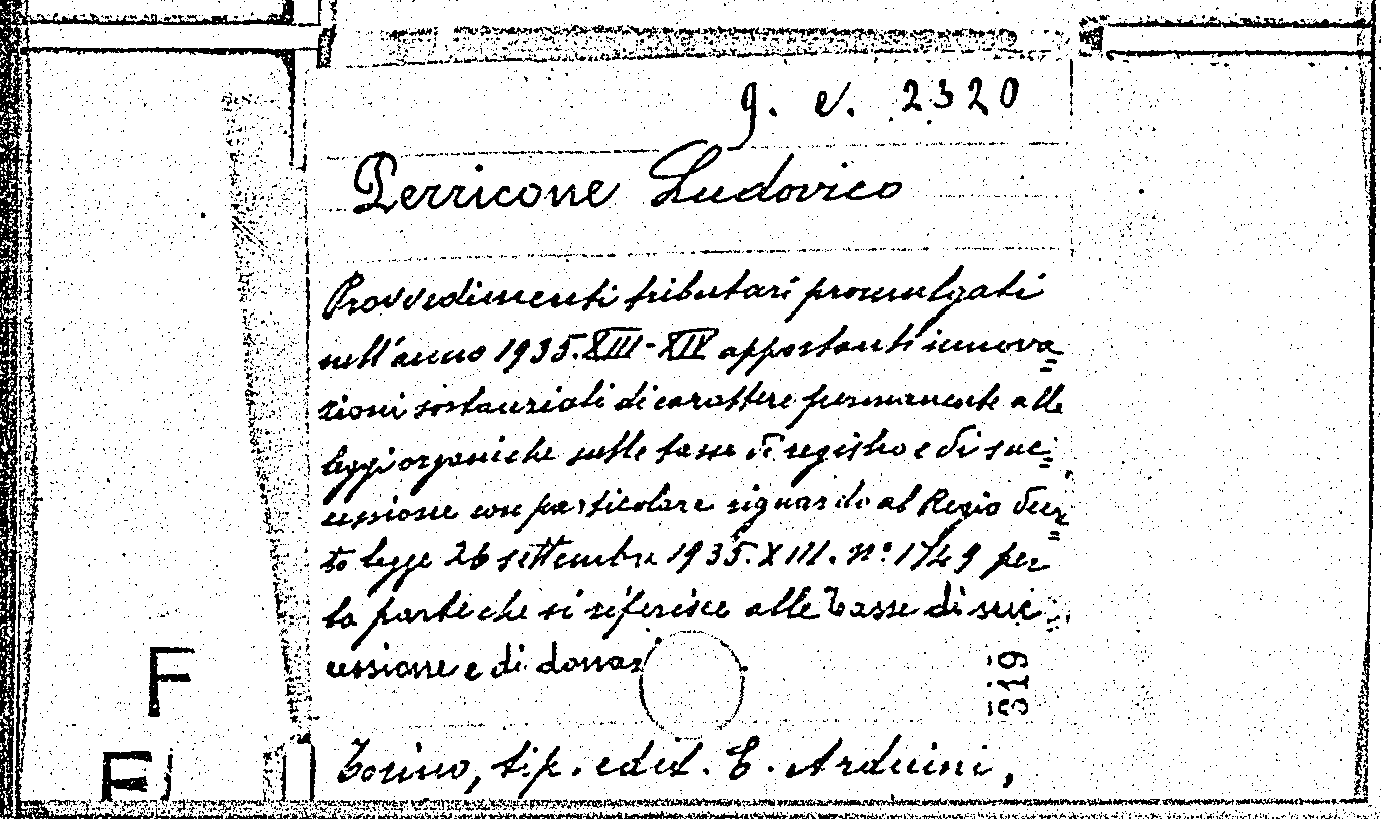 g. e. 2320
Perricone Ludovico
Provvedimenti tributari promulgati
nell'anno 1935.XIII-XIV apportanti innova=
zioni sostanziali di carattere permanente alle
leggi organiche sulle tasse di registro e di suc=
cessione con particolare riguardo al Regio decre=
to legge 26 settembre 1935.XIII. nº 1749 per
la parte che si riferisce alle tasse di suc=
cessione e di donaz
319
Torino, tip. edit. E. Arduini,
F
F